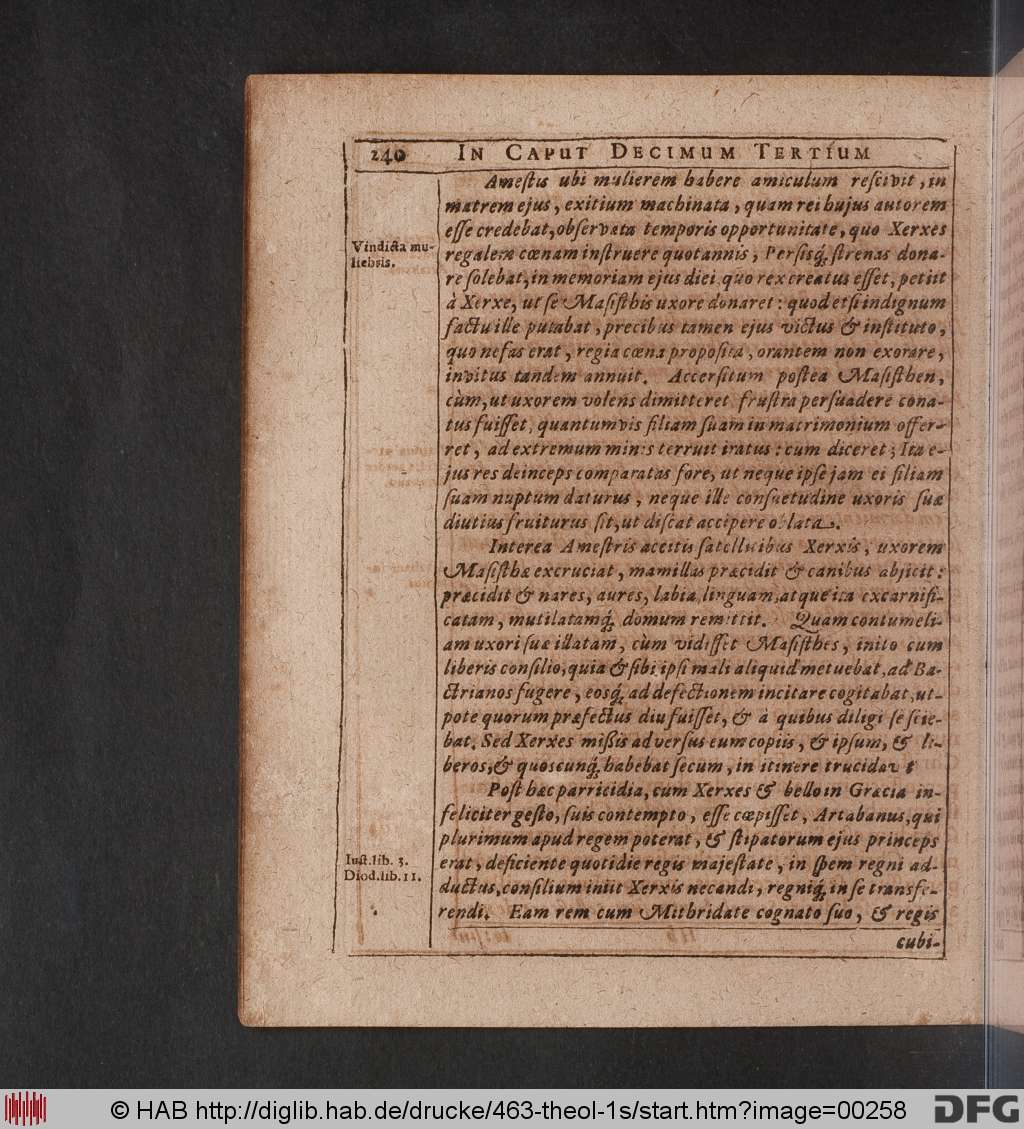 240 IN CAPUT DECIMUM TERTIUM
Amestis ubi mulierem habere amiculum rescivit, in
matrem ejus, exitium machinata, quam rei hujus autorem
esse credebat, observata temporis opportunitate, quo Xerxes
Vindicta mu-
liebris.
regalem cœnam instruere quotannis, Persisq́ strenas dona-
re solebat, in memoriam ejus diei quo rex creatus esset, petiit
à Xerxe, ut se Masisthis uxore donaret: quod etsi indignum
factu ille putabat, precibus tamen ejus victus & instituto,
quo nefas erat, regia cœna proposita, orantem non exorare,
invitus tandem annuit. Accersitum postea Masisthen,
cùm, ut uxorem volens dimitteret frustra persuadere cona-
tus fuisset, quantumvis filiam suam in matrimonium offer-
ret, ad extremum minis terruit iratus: cum diceret; Ita e-
jus res deinceps comparatas fore, ut neque ipse jam ei filiam
suam nuptum daturus, neque ille consuetudine uxoris suæ
diutius fruiturus sit, ut discat accipere oblata.
Interea Amestris acciis satellitibus Xerxis, uxorem
Masisthæ excruciat, mamillas præcidit & canibus abjicit:
præcidit & nares, aures, labia, linguam, atque ita excarnifi-
catam, mutilatamq́, domum remittit. Quam contumeli-
am uxori suæ illatam, cùm vidisset Masisthes, inito cum
liberis consilio, quia & sibi ipsi mali aliquid metuebat, ad Ba-
ctrianos fugere, eosq́, ad defectionem incitare cogitabat, ut-
pote quorum præfectus diu fuisset, & à quibus diligi se scie-
bat. Sed Xerxes missis adversus eum copiis, & ipsum, & li-
beros, & quoscunq́, habebat secum, in itinere trucidav t
Post hæc parricidia, cum Xerxes & bello in Græcia in-
feliciter gesto, suis contempto, esse cœpisset, Artabanus, qui
plurimum apud regem poterat, & stipatorum ejus princeps
Just. lib. 3.
Diod. lib. 11.
erat, deficiente quotidie regis majestate, in spem regni ad-
ductus, consilium iniit Xerxis necandi, regniq́, in se transfe-
rendi. Eam rem cum Mithridate cognato suo, & regis
cubi-
© HAB http://diglib.hab.de/drucke/463-theol-1s/start.htm?image=00258
DFG